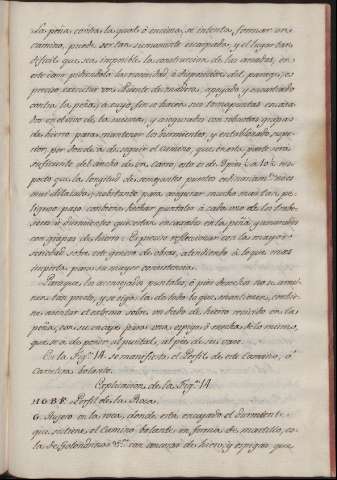 la peña contra la qual, ó encima, se intenta formar un
camino, puede ser tan sumamente escarpada, y el lugar tan
dificil que sea imposible la construccion de las arcadas, en
este caso pidiendolo la necesidad, ó disposicion del parage, es
preciso executar un Puente de madera, apoyado y encaxado
contra la peña, á cuyo fin se hacen sus
do en el vivo de la misma, y asegurados con robustas grapas
de hierro para mantener los durmientes, y entablonado supe-
rior, por donde á de seguir el camino, que en esta parte será
suficiente del ancho de un carro, esto es de 9 pies á 10; su-
puesto que la longitud de semejantes puentes
mui dilatada; no obstante para asegurar mucho mas tan pe-
ligroso paso combiene hechar puntales á cada uno de los trabe-
seros ó durmientes que estan encaxados en la peña, y unirlos
con grapas de hierro: Es preciso reflexionar con la mayor
seriedad sobre este genero de obras, atendiendo á lo que mas
importa para su mayor consistencia.
Para que los aconsejados puntales, ó pies derechos no se arrui-
nen tan presto, y se siga la de todo lo que mantienen, combie-
ne asentar el extremo sobre un dado de hierro recivido en la
peña, con su encaje para una espiga ó mecha de lo mismo,
que se á de poner al puntal, al pie de su caxo.
En la Fig.ª 14. se manifiesta el Perfil de este Camino, ó
Carretera bolante.
Explicacion de la Fig.ª 14.
H.O.B.F. Perfil de la Roca.
G. Agujero en la roca, donde está encajado el durmiente,
que sostiene el Camino bolante en forma de martillo, co-
la de Golondrina &.ª con anorgas de hierro, y espigas, que